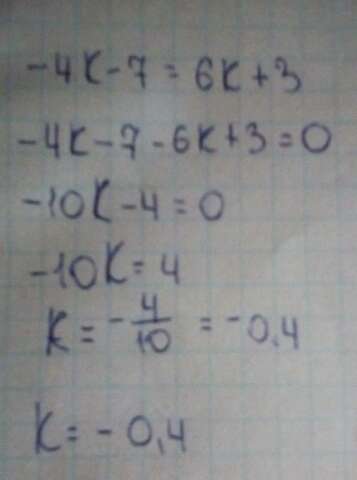 -4K-7=6K+3
-4K-7-6K+3=0
-10K-4=0
-10K=4
K=-4/10=-0,4
K=-0,4